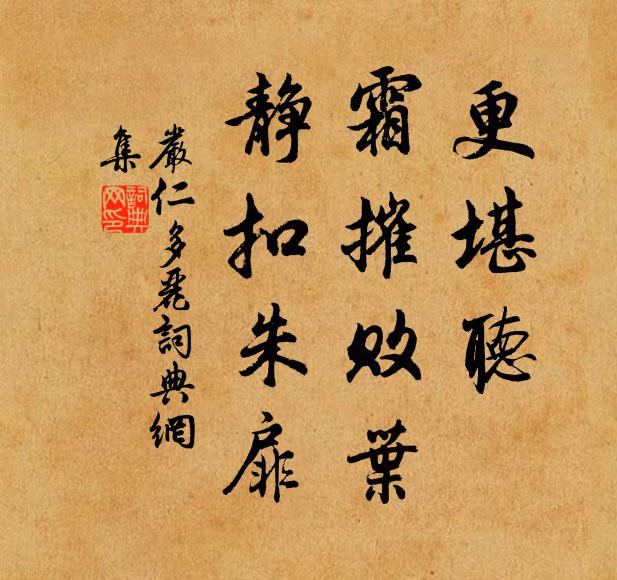 更堪聽
霜摧败葉
靜扣朱扉
嚴仁多麗詞典網
集
詞典
网印